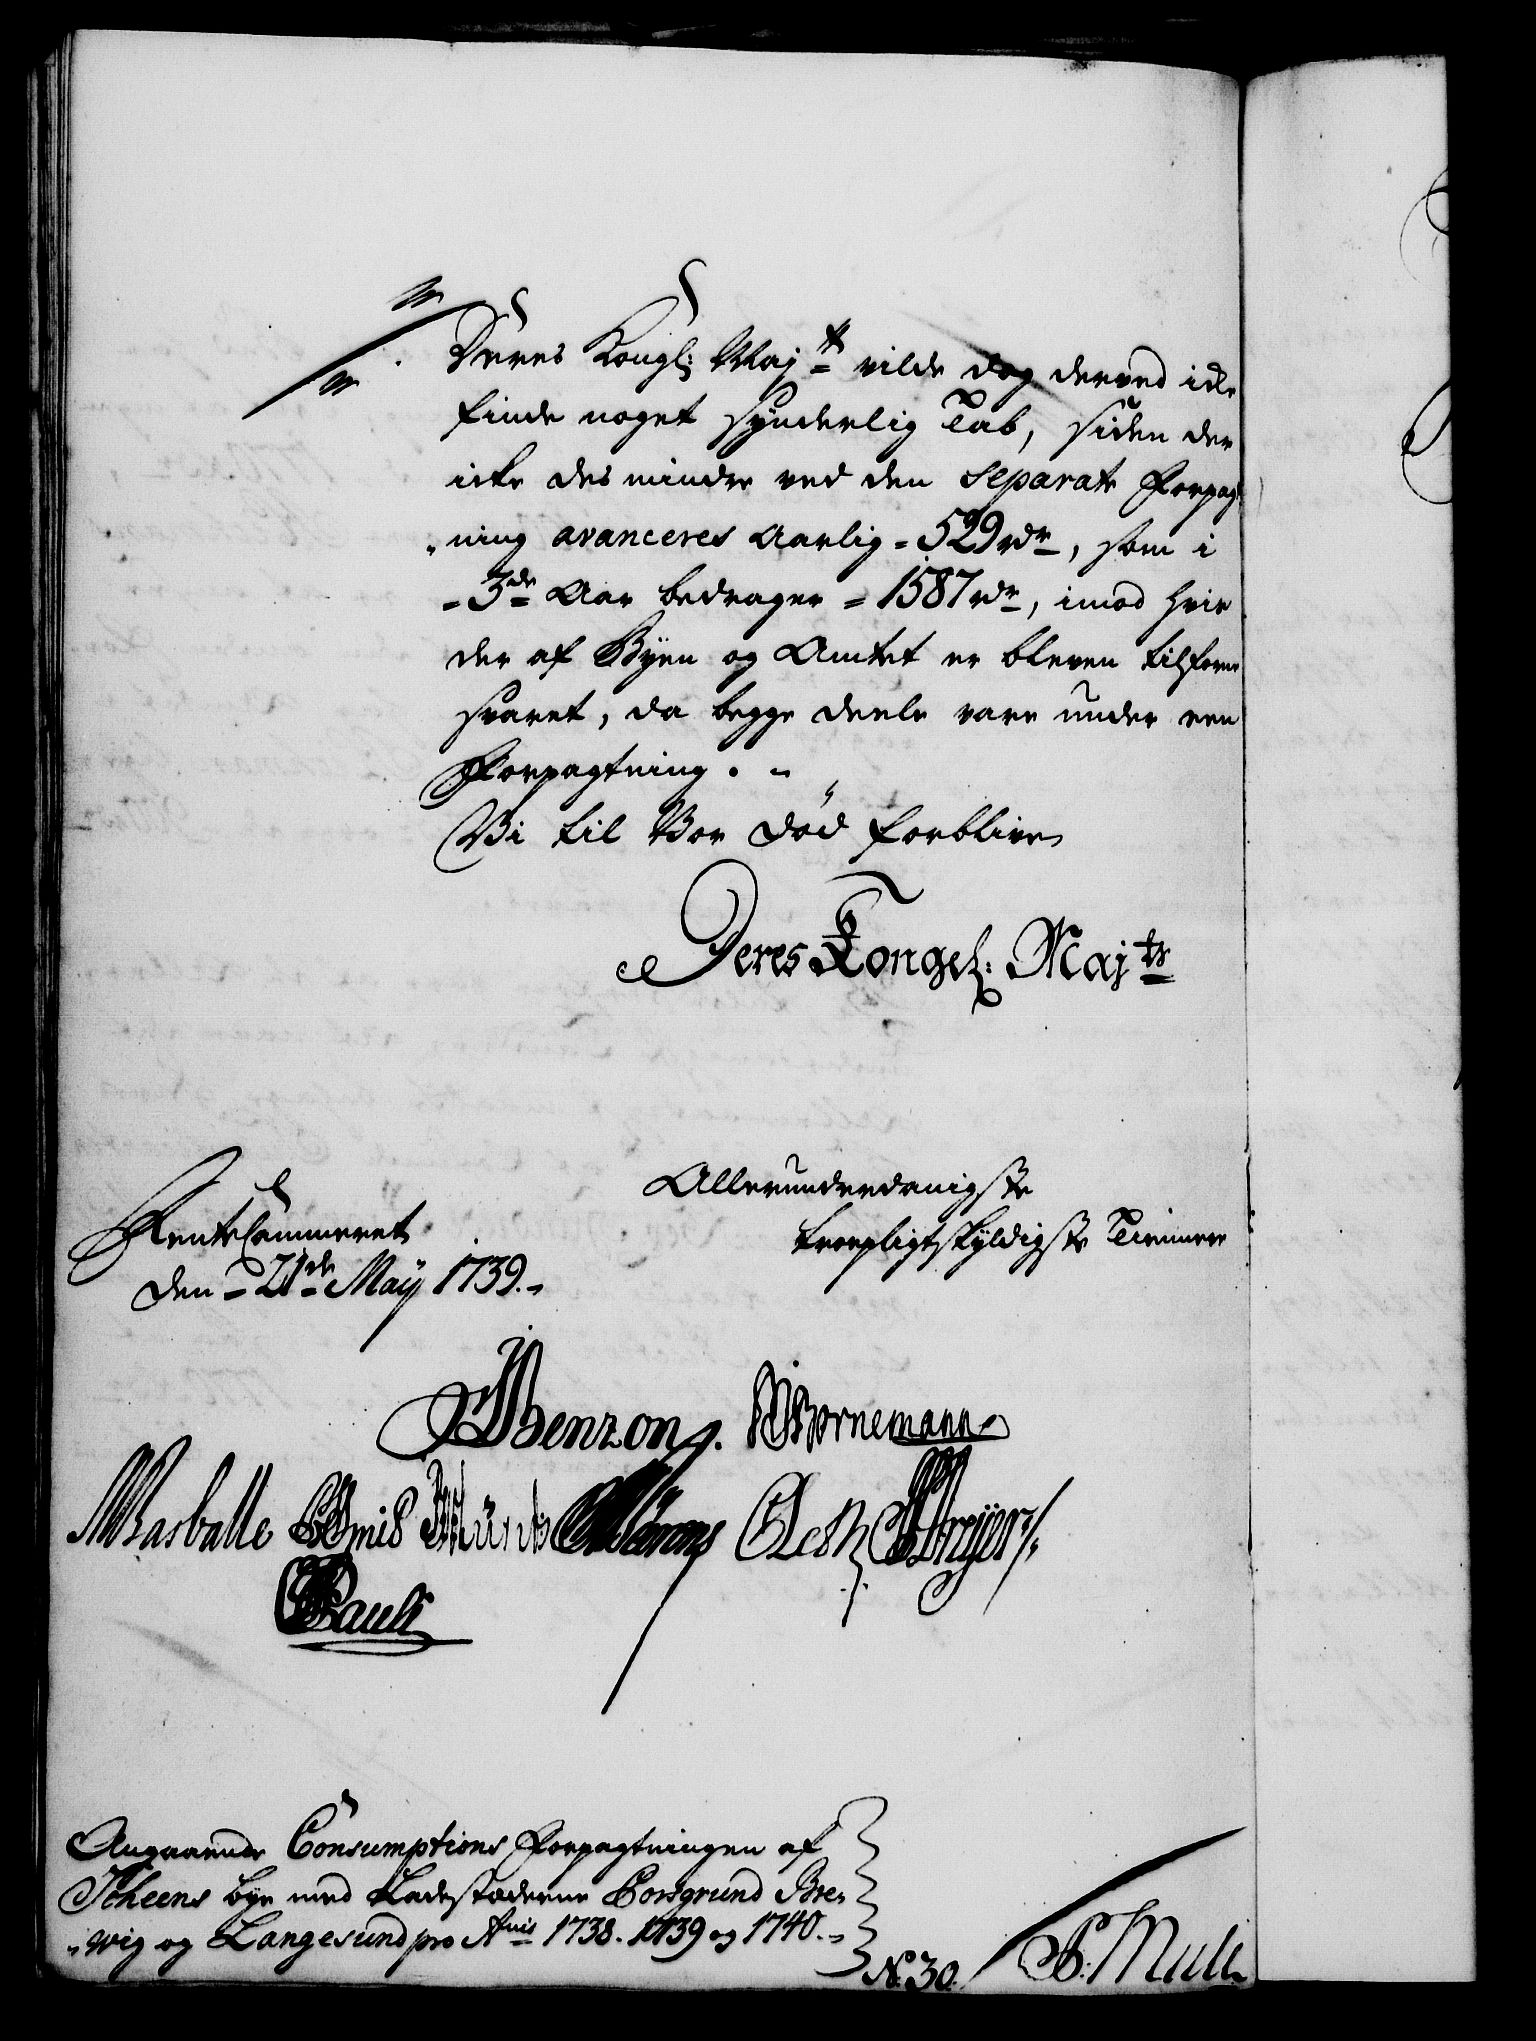 Deres Kongl: Maj:tt vilde dog derved icke
finde noget synderlig Tab, siden der
icke des mindre ved den separate Forpagt-
ning avanceres aarlig = 529 rdr, som i
= 3de Aar bedrager = 1587 rdr, imod hvis
der af Byen og Amtet er bleven tilforn
svaret, da begge deele vare under een
Forpagtning. =
Vi til Vor Død forblive
Deres Kongel: Majts
Allerunderdanigste
troepligtskyldigste Tienner
Rente Cammeret
den = 21de Maÿ 1739. =
Benzon. Bornemann
Basballe
Pauli
Angaaende Consumptions Forpagtningen af
Scheens Bye med Ladestæderne Porsgrund Bre-
wig og Langesund pro Anis 1738. 1739 og 1740. =
No: 30.